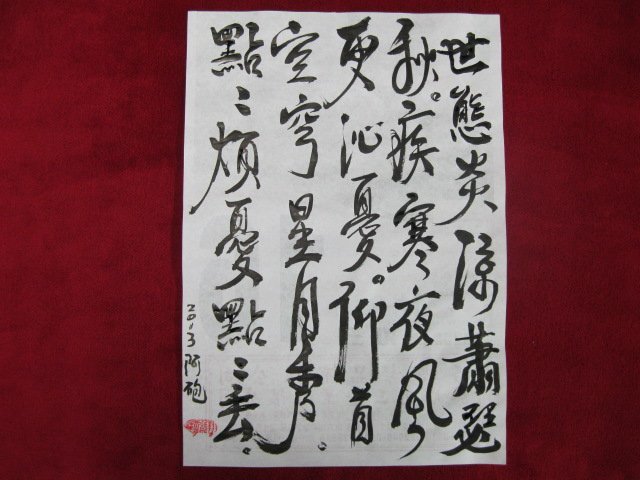 世態炎涼蕭瑟
秋。疾寒夜風
更沁憂。仰首
空穹星月秀。
點〻煩憂點〻丟。
2013 阿砲